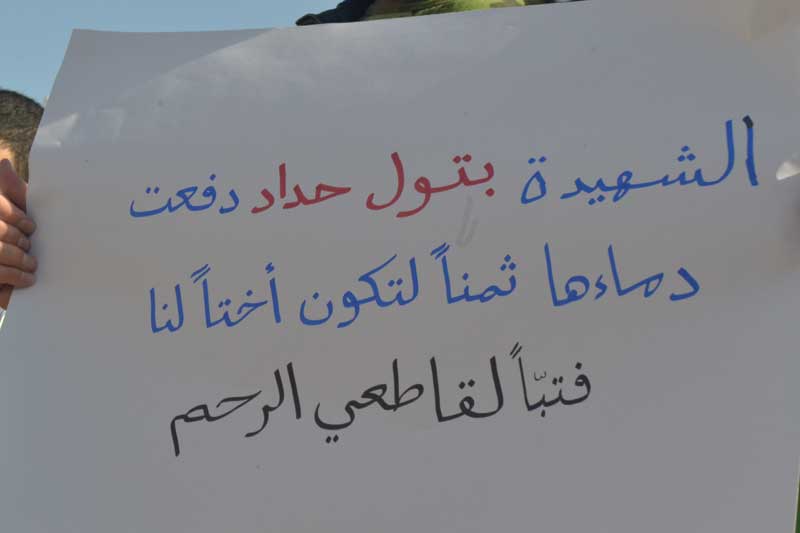 الشهيدة بتول حداد دفعت
دماءها ثمناً لتكون أختاً لنا
فتبّاً لقاطعي الرحم